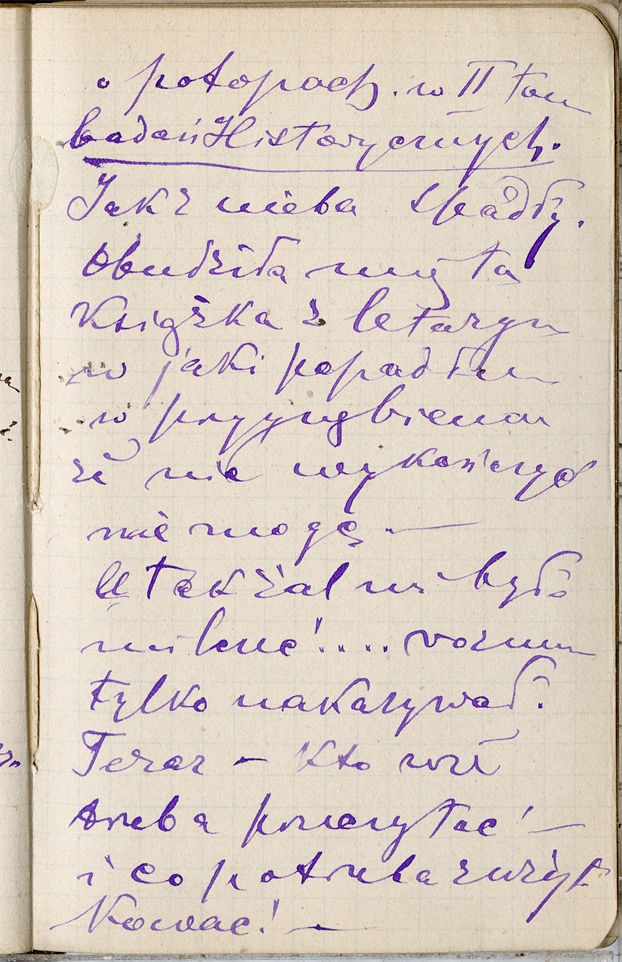 o potopach. w II tom
badań Historycznych.
Jak z nieba spadły.
Obudziła mię ta
Książka z letargu
w jaki popadłem
w przygnębieniu
że nic wykończyć
nie mogę —
A tak żal mi było
milczeć!.... rozum
tylko nakazywał.
Teraz – Kto wie
trzeba przeczytać! —
i co potrzeba zużyt
kować! —